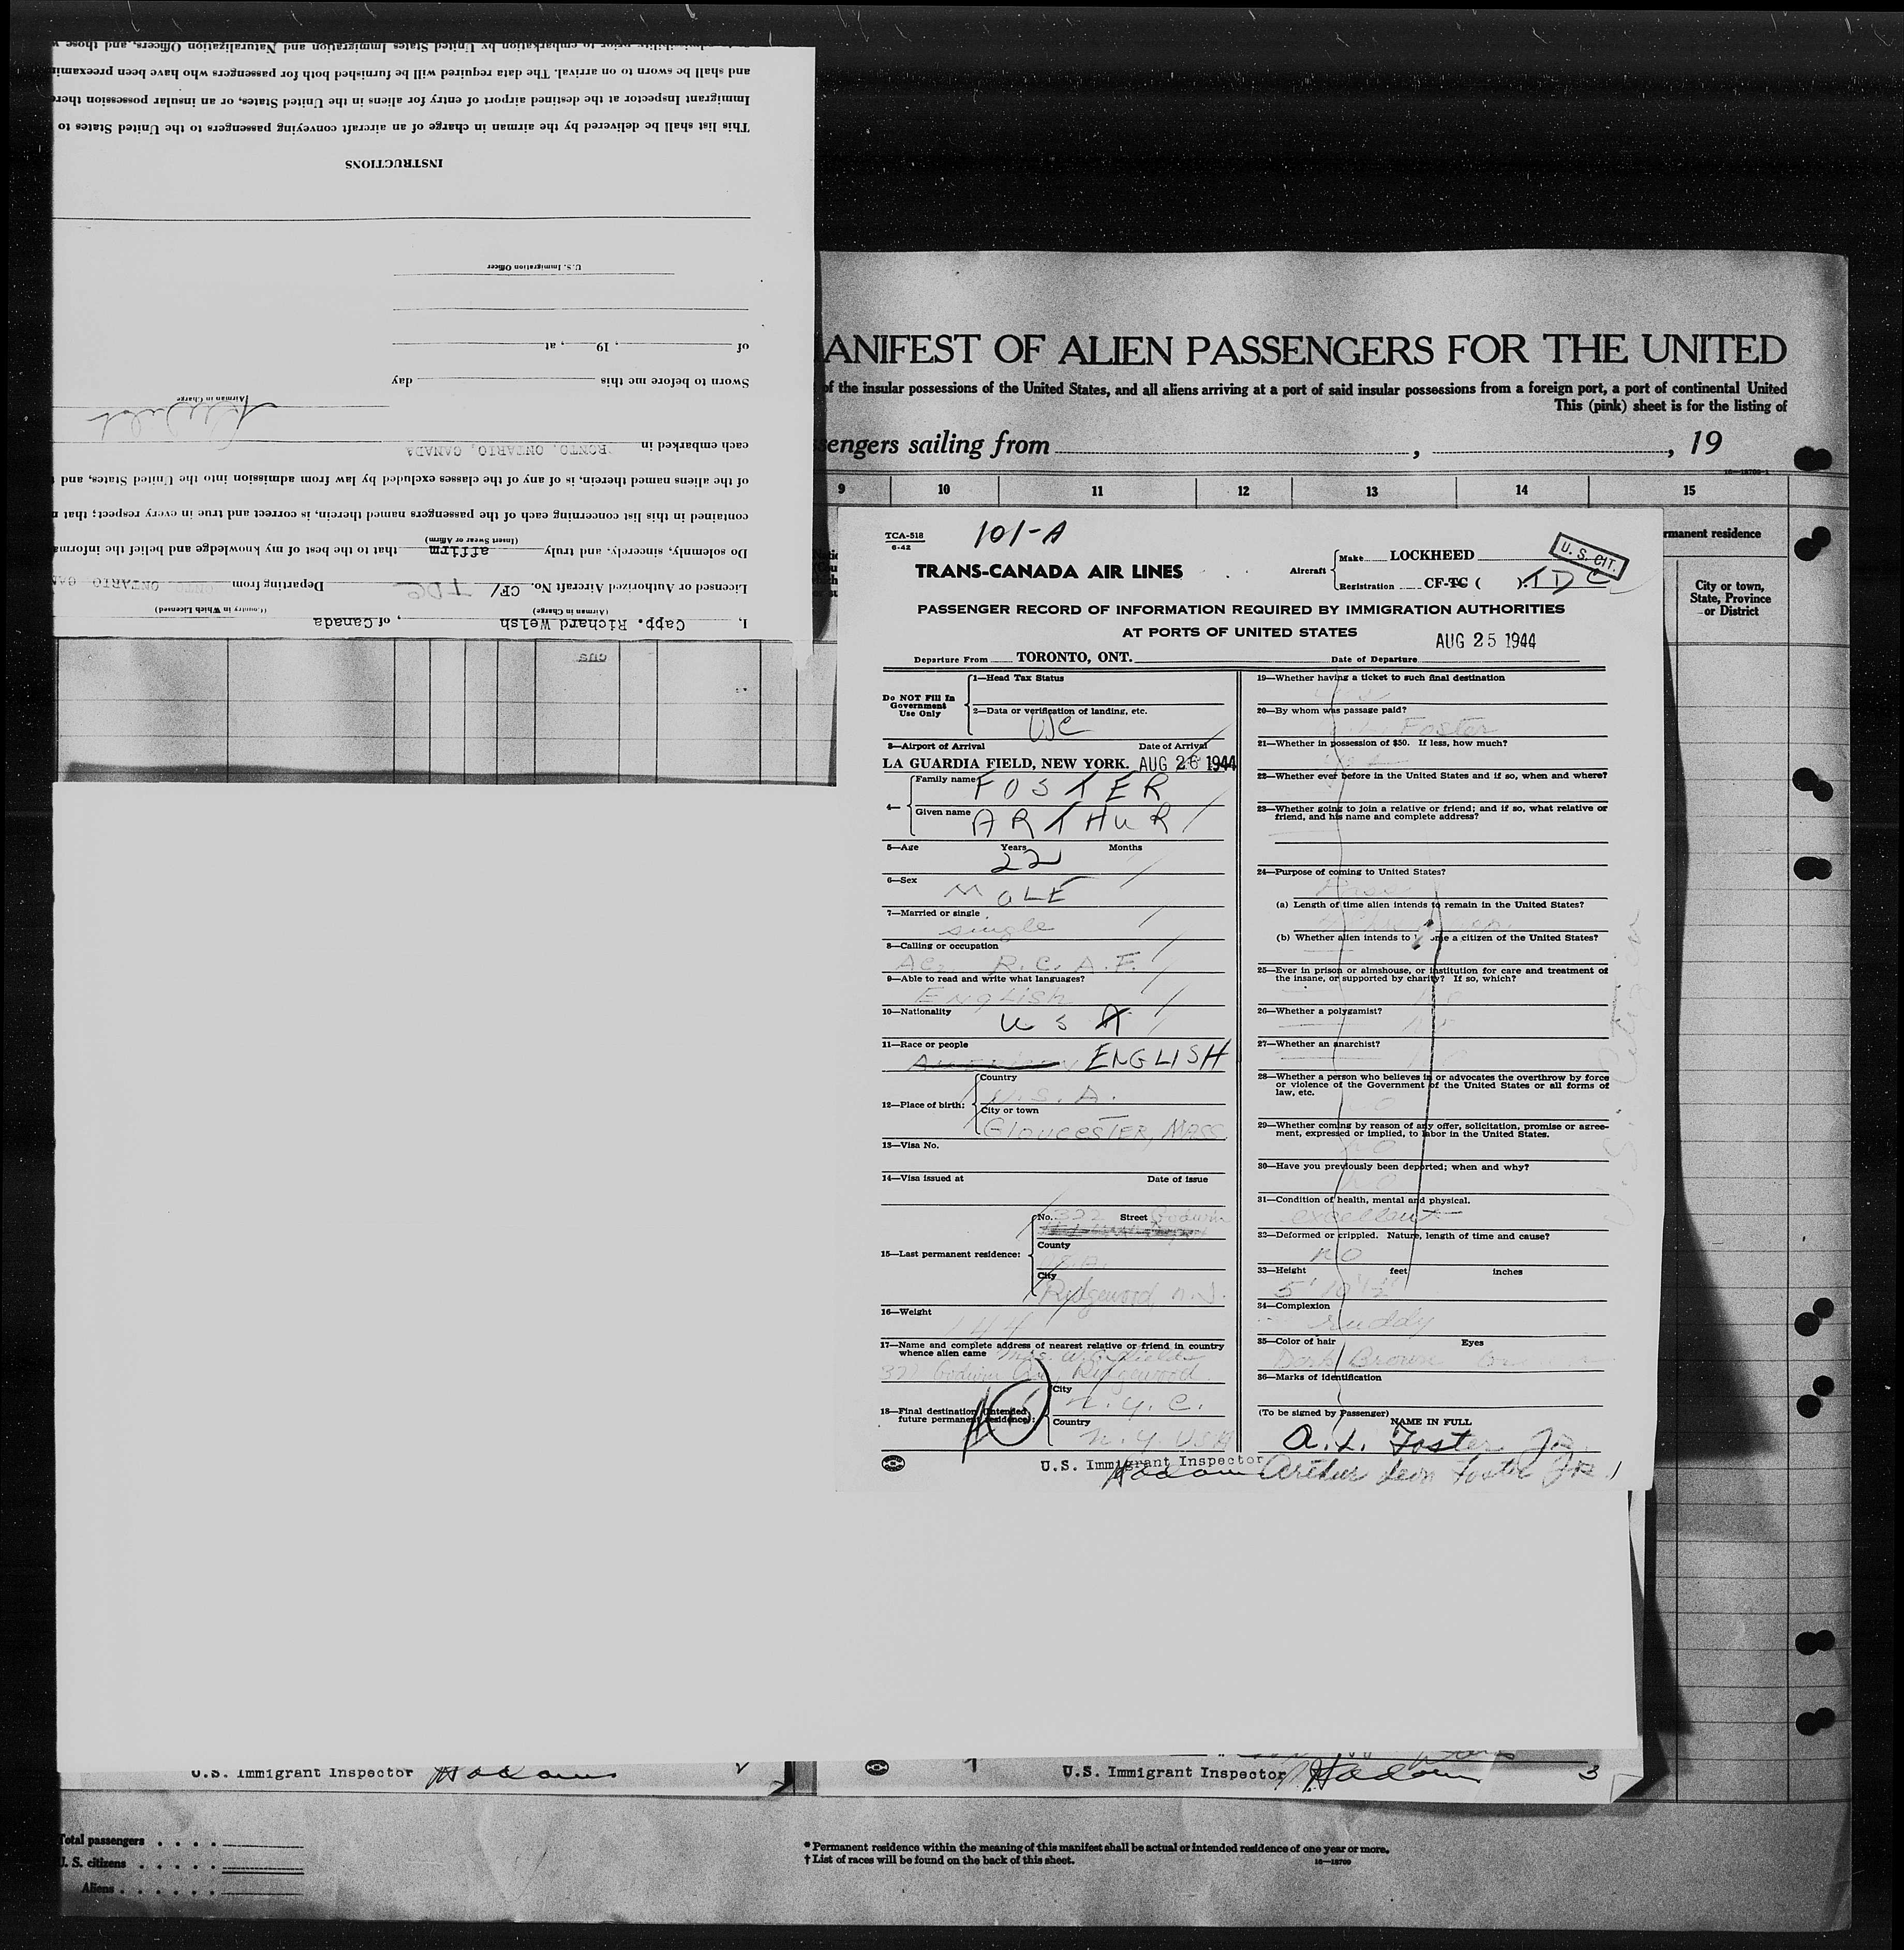 admissibility prior to embarkation by United States Immigration and Naturalization Officers, and those
and shall be sworn to on arrival. The data required will be furnished both for passengers who have been preexamin
Immigrant Inspector at the destined airport of entry for aliens in the United States, or an insular possession there
This list shall be delivered by the airman in charge of an aircraft conveying passengers to the United States to
INSTRUCTIONS
U.S. Immigration Officer
of , 19 , at
Sworn to before me this day
(Airman in Charge
each embarked in RONTO, ONTARIO, CANADA
of the aliens named therein, is of any of the classes excluded by law from admission into the United States, and
contained in this list concerning each of the passengers named therein, is correct and true in every respect; that
Do solemnly, sincerely, and truly affirm that to the best of my knowledge and belief the informa
(Insert Swear or Affirm)
Licensed or Authorized Aircraft No. CF/ TDC Departing from ONTO ONTARIO CAN
(Airman in Charge) (Country in Which Licensed)
I, Capp. Richard Welsh, of Canada
ANIFEST OF ALIEN PASSENGERS FOR THE UNITED
of the insular possessions of the United States, and all aliens arriving at a port of said insular possessions from a foreign port, a port of continental United
This (pink) sheet is for the listing of
sengers sailing from , , 19
16—18709-1
9 10 11 12 13 14 15
rmanent residence
City or town,
State, Province
or District
TCA-518
6-42
101-A
TRANS-CANADA AIR LINES
Aircraft
Make LOCKHEED
Registration CF-TC ( ) TDC
U.S. CIT.
PASSENGER RECORD OF INFORMATION REQUIRED BY IMMIGRATION AUTHORITIES
AT PORTS OF UNITED STATES
AUG 25 1944
Departure From TORONTO, ONT. Date of Departure
Do NOT Fill In
Government
Use Only
1—Head Tax Status
2—Data or verification of landing, etc.
USC
3—Airport of Arrival Date of Arrival
LA GUARDIA FIELD, NEW YORK. AUG 26 1944
4—
Family name FOSTER
Given name ARTHUR
5—Age Years Months
22
6—Sex
MALE
7—Married or single
single
8—Calling or occupation
AC2 R.C.A.F.
9—Able to read and write what languages?
English
10—Nationality
USA
11—Race or people
American ENGLISH
12—Place of birth:
Country
U.S.A.
City or town
GLOUCESTER, MASS
13—Visa No.
14—Visa issued at Date of issue
15—Last permanent residence:
No. 322 Street Godwin
County
City
Ridgewood N.J.
16—Weight
144
17—Name and complete address of nearest relative or friend in country
whence alien came Mrs.
Godwin Ave Ridgewood
18—Final destination (intended
future permanent residence):
City
N.Y.C.
Country
N.Y. USA
19—Whether having a ticket to such final destination
20—By whom was passage paid?
Foster
21—Whether in possession of $50. If less, how much?
22—Whether ever before in the United States and if so, when and where?
23—Whether going to join a relative or friend; and if so, what relative or
friend, and his name and complete address?
24—Purpose of coming to United States?
(a) Length of time alien intends to remain in the United States?
(b) Whether alien intends to become a citizen of the United States?
25—Ever in prison or almshouse, or institution for care and treatment of
the insane, or supported by charity? If so, which?
no
26—Whether a polygamist?
no
27—Whether an anarchist?
no
28—Whether a person who believes in or advocates the overthrow by force
or violence of the Government of the United States or all forms of
law, etc.
no
29—Whether coming by reason of any offer, solicitation, promise or agree-
ment, expressed or implied, to labor in the United States.
no
30—Have you previously been deported; when and why?
no
31—Condition of health, mental and physical.
excellant
32—Deformed or crippled. Nature, length of time and cause?
no
33—Height feet inches
5' 10 1/2"
34—Complexion
ruddy
35—Color of hair Eyes
Dark Brown
36—Marks of identification
(To be signed by Passenger)
NAME IN FULL
A. L. Foster Jr.
U.S. Immigrant Inspector Arthur Leon Foster Jr. 1
U.S. Citizen
U.S. Immigrant Inspector
U.S. Immigrant Inspector 3
Total passengers
U. S. citizens
Aliens
* Permanent residence within the meaning of this manifest shall be actual or intended residence of one year or more.
† List of races will be found on the back of this sheet. 16—18709